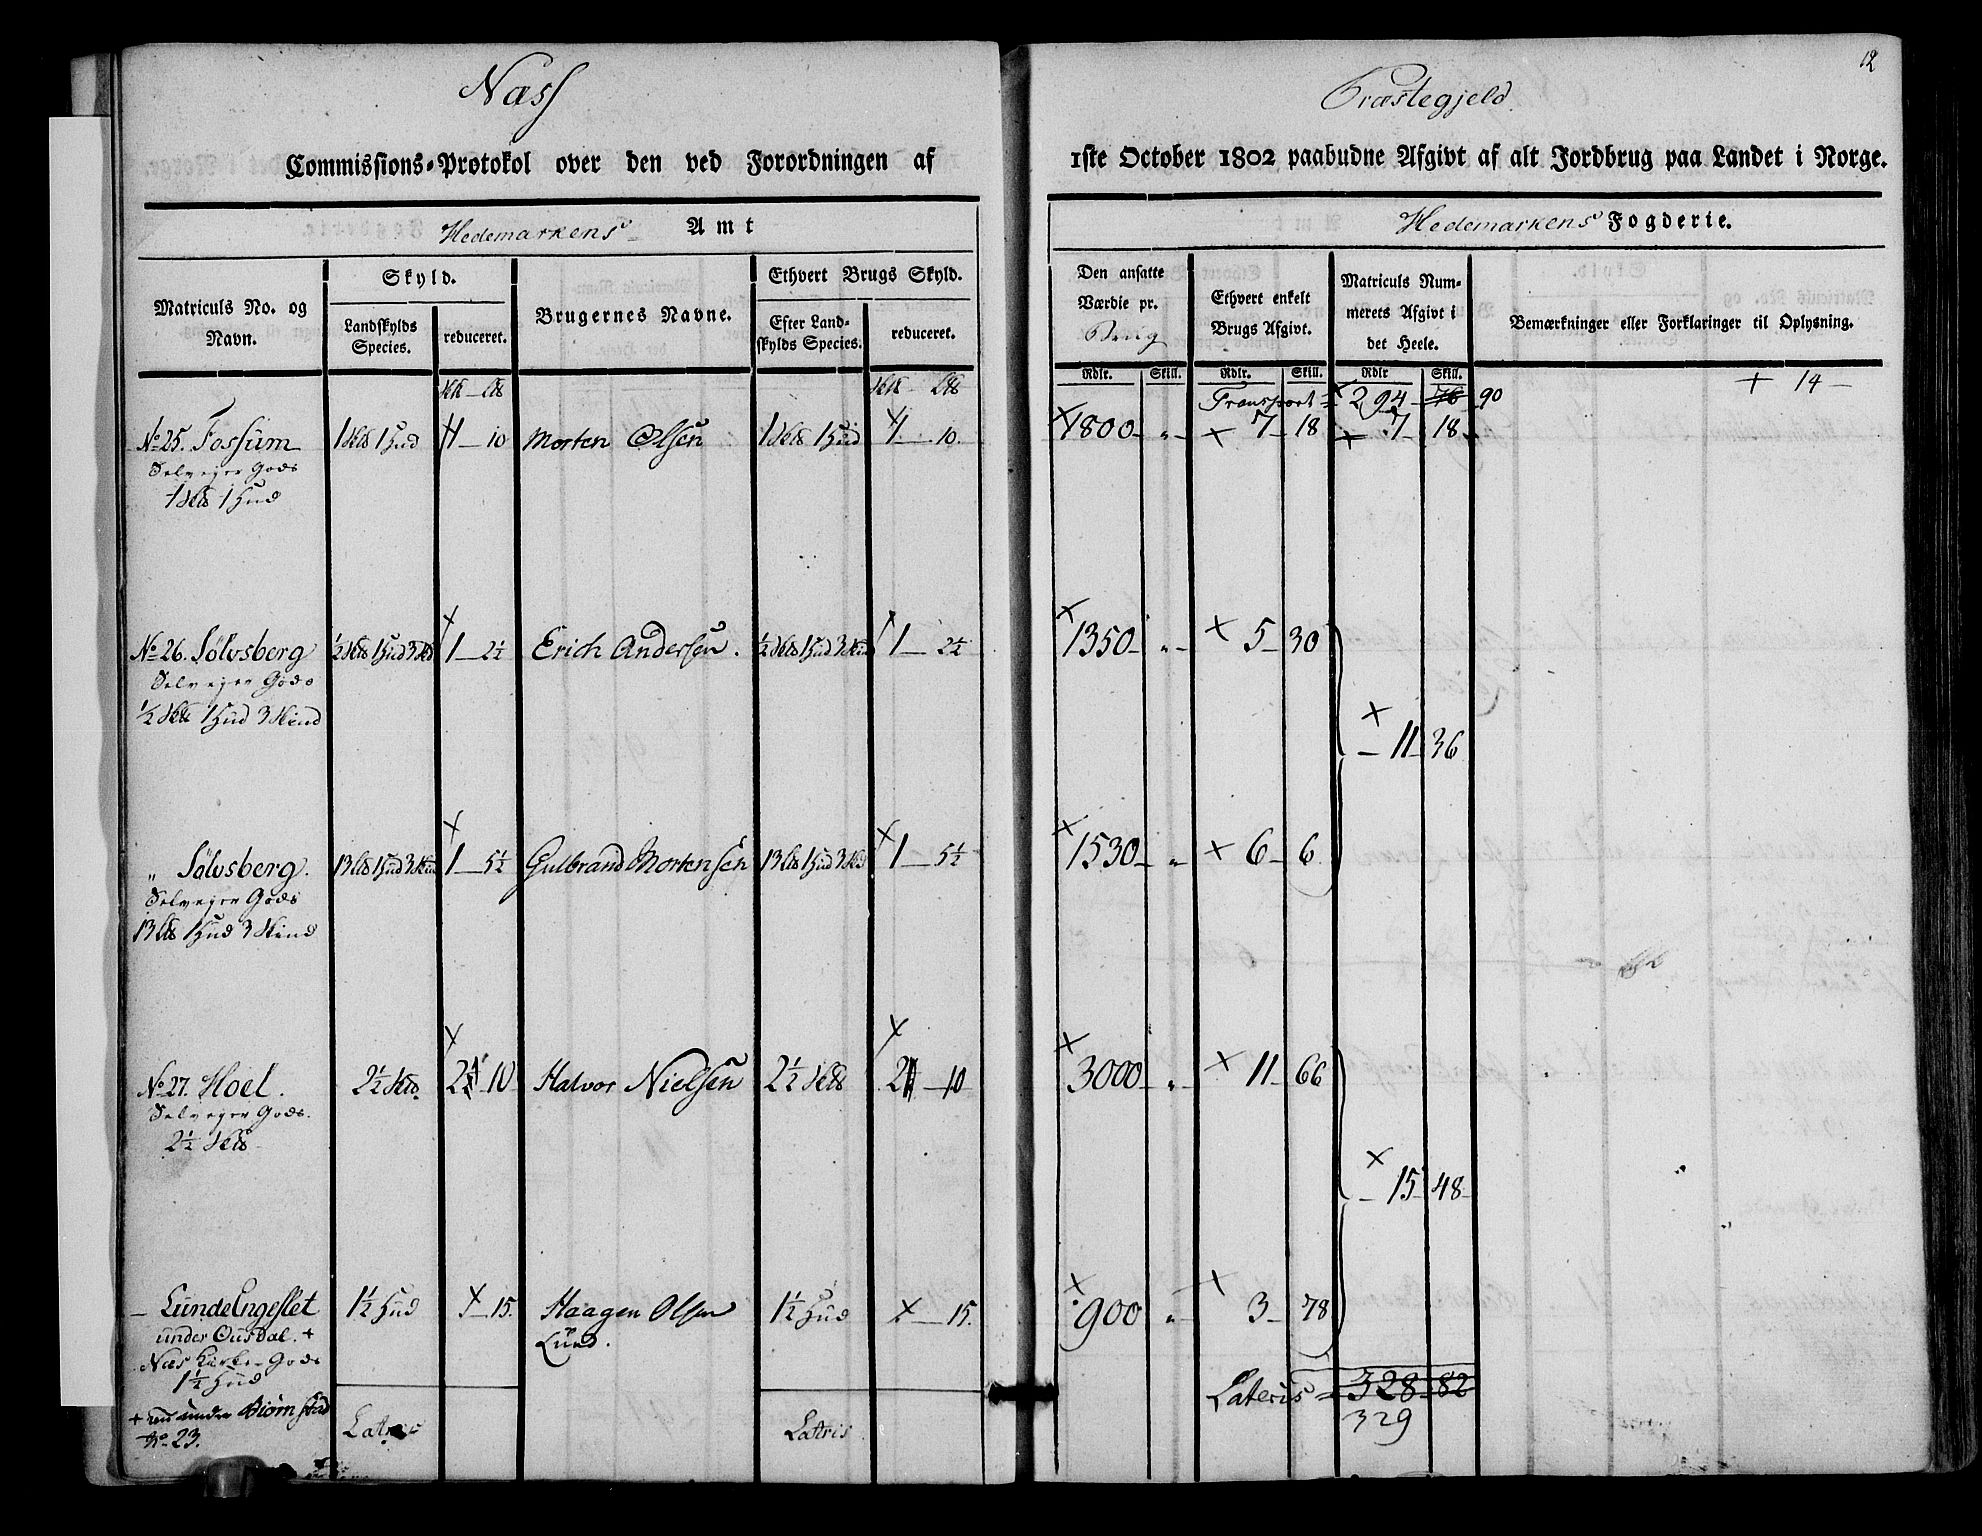 12
Næss
Præstegjeld
Commissions-Protokol over den ved Forordningen af
1ste October 1802 paabudne Afgivt af alt Jordbrug paa Landet i Norge.
Hedemarkens Amt
Hedemarkens Fogderie.
Matriculs No. og Navn.
Skyld.
Landskylds Species.
reduceret.
Brugernes Navne.
Ethvert Brugs Skyld.
Efter Landskylds Species.
reduceret.
Den ansatte Værdie pr. Brug
Ethvert enkelt Brugs Afgivt.
Matriculs Nummerets Afgivt i det Heele.
Bemærkninger eller Forklaringer til Oplysning.
Rdlr. Skill. Rdlr. Skill. Rdlr Skill.
Transport 294 76 90
+ 14
No 25. Fossum 1 Sk℔ 1 Hud 1 10 Morten Olsen 1 Sk℔ 1 Hud 1 10. 1800 „ 7 18 7 18
Selveyer Gods
1 Sk℔ 1 Hud
No 26. Sölvsberg ½ Sk℔ 1 Hud 3 Skd 1 2½ Erich Andersen. ½ Sk℔ 1 Hud 3 Skind 1 2½ 1350 „ 5 30
Selveyer Gods
½ Sk℔ 1 Hud 3 Skind
11 36
„ Sölvsberg. 13 L℔ 1 Hud 3 Skind 1 5½ Gulbrand Mortensen 13 L℔ 1 Hud 3 Skd 1 5½ 1530 „ 6 6
Selveyer Gods
13 L℔ 1 Hud 3 Skind
No 27. Hoel. 2½ Sk℔ 2 10 Halvor Nielsen 2½ Sk℔ 2 10 3000 „ 11 66
Selveyer Gods.
2½ Sk℔
15 48
Lunde Engeslet 1½ Hud 15. Haagen Olsen 1½ Hud 15. 900 „ 3 78
under Ousdal. + Lund.
Næs Kirke-Gods
1½ Hud
+ nu under Biørnstad
No. 23.
Latris Latris Lateris 328 82
329